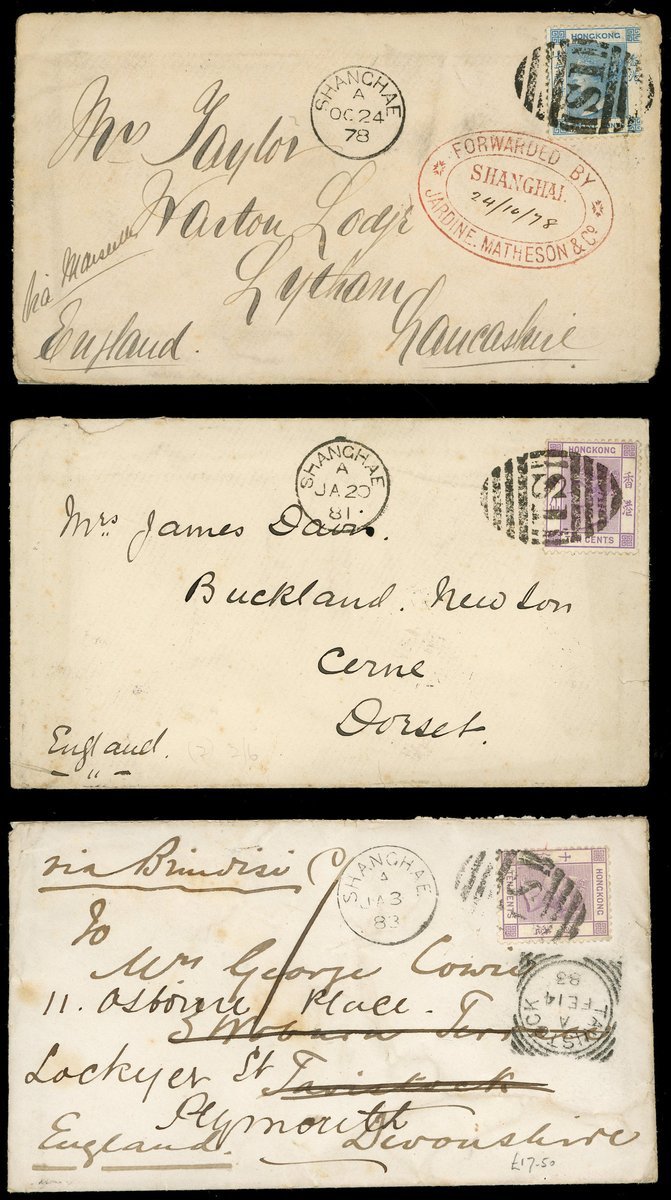 HONGKONG
S1
SHANGHAE
A
OC 24
78
FORWARDED BY
SHANGHAI.
24/10/78
JARDINE, MATHESON & Co
Mrs Taylor
Warton Lodge
via Marseilles
Lytham
England. Lancashire
HONGKONG
香港
TEN CENTS
SHANGHAE
A
JA 20
81
S1
Mrs James Davis.
Buckland. Newton
Cerne
Dorset.
England.
(2) 2/6
via Brindisi
SHANGHAE
A
JA 3
83
TEN CENTS
HONGKONG
TAVISTOCK
A
FE 14
83
To
Mrs George Cowie
11. Osborne Place.
3 Woburn Terr
Lockyer St Tavistock
Plymouth
England. Devonshire
£17.50